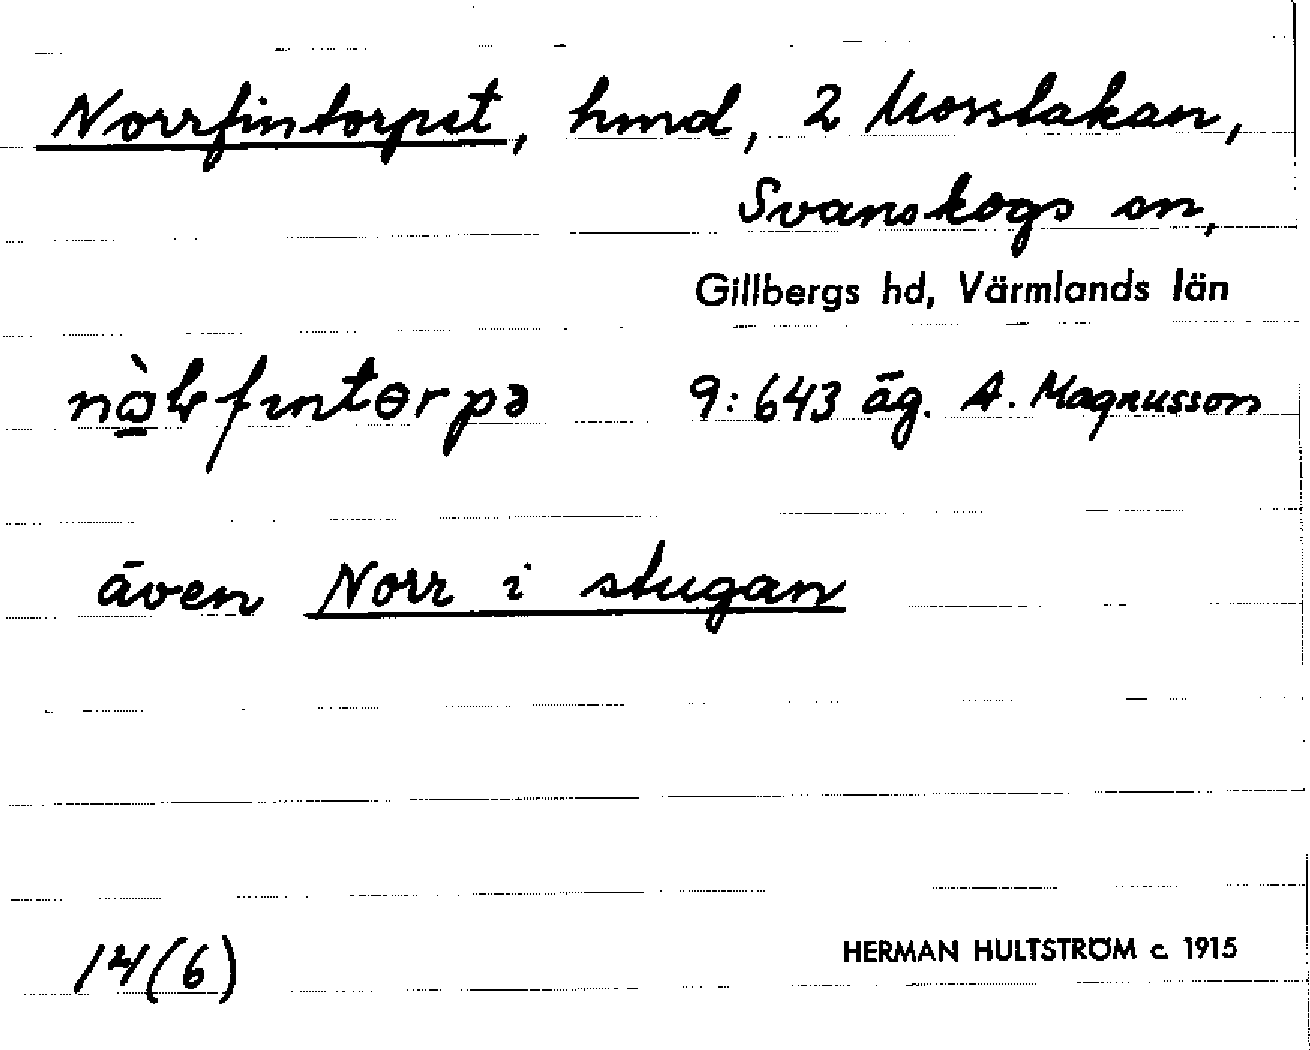 Norrfintorpet, hmd, 2 Mosslakan,
Svanskogs sn,
Gillbergs hd, Värmlands län
9:643 äg. A. Magnusson
även Norr i stugan
14(6)
HERMAN HULTSTRÖM c. 1915